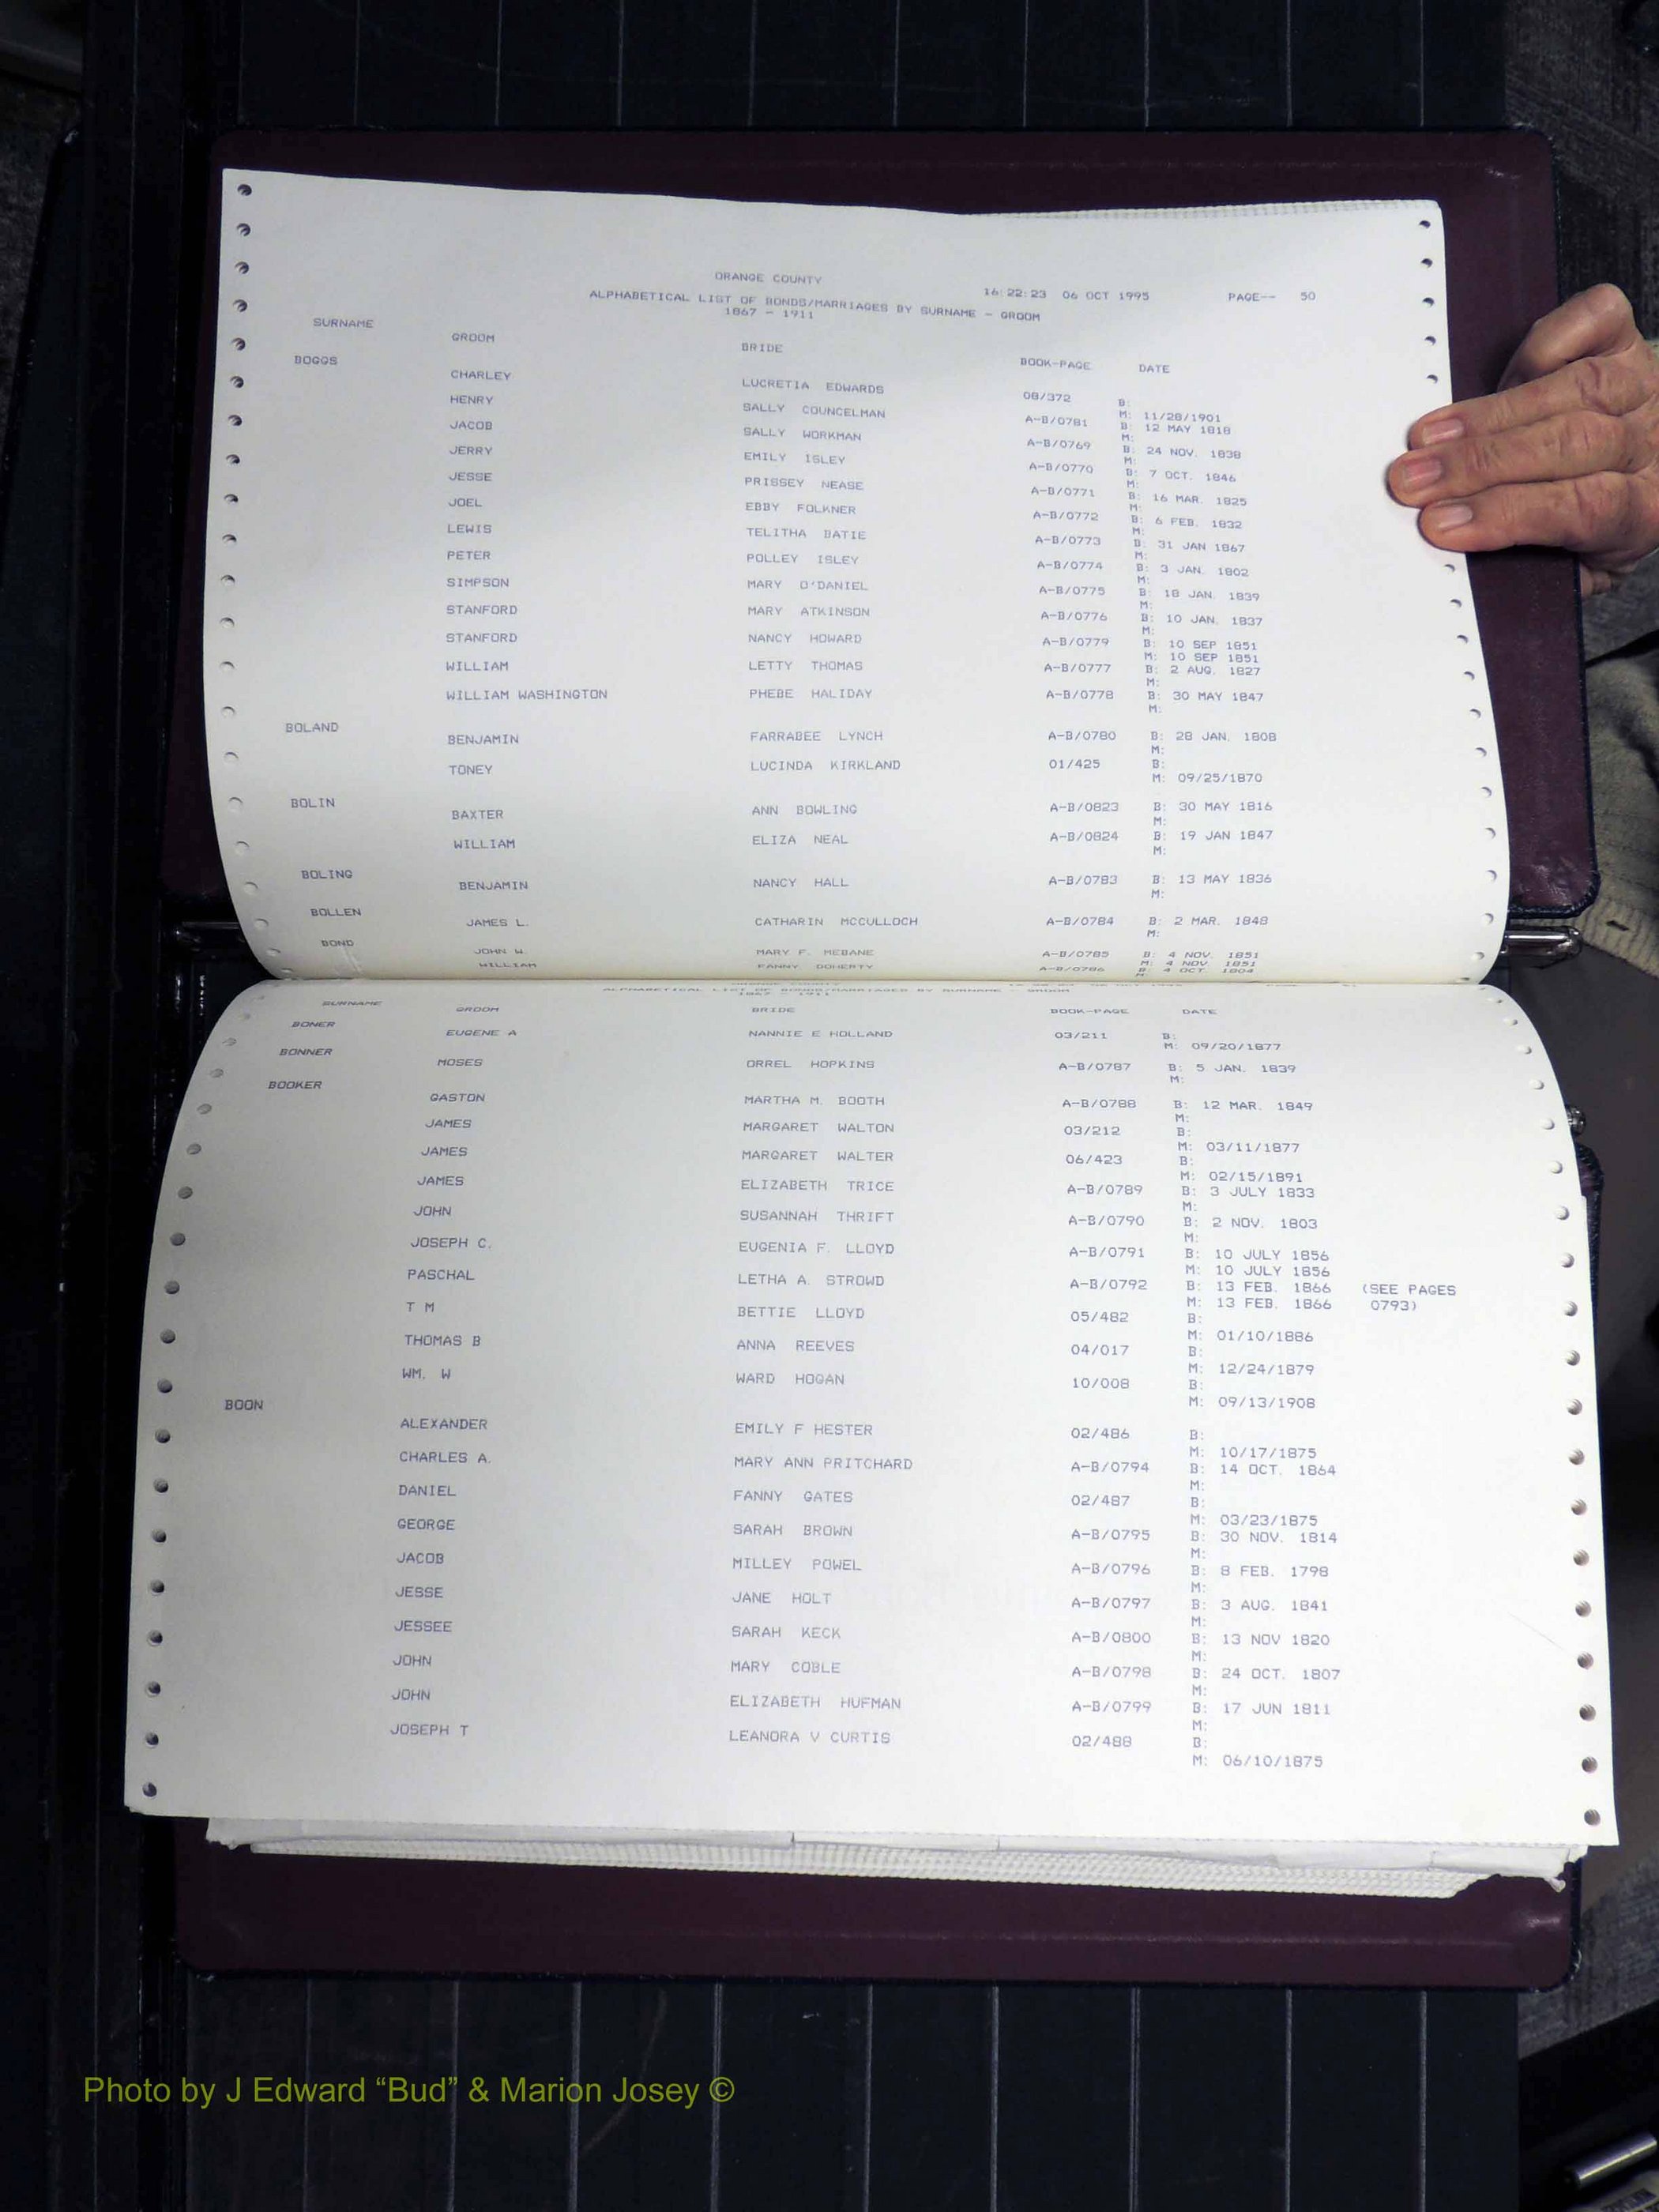 ORANGE COUNTY 16:22:23 06 OCT 1995 PAGE-- 50
ALPHABETICAL LIST OF BONDS/MARRIAGES BY SURNAME - GROOM
1867 - 1911
SURNAME GROOM BRIDE BOOK-PAGE DATE
BOGGS
CHARLEY LUCRETIA EDWARDS 08/372 B:
M: 11/28/1901
HENRY SALLY COUNCELMAN A-B/0781 B: 12 MAY 1818
M:
JACOB SALLY WORKMAN A-B/0769 B: 24 NOV. 1838
M:
JERRY EMILY ISLEY A-B/0770 B: 7 OCT. 1846
M:
JESSE PRISSEY NEASE A-B/0771 B: 16 MAR. 1825
M:
JOEL EBBY FOLKNER A-B/0772 B: 6 FEB. 1832
M:
LEWIS TELITHA BATIE A-B/0773 B: 31 JAN 1867
M:
PETER POLLEY ISLEY A-B/0774 B: 3 JAN. 1802
M:
SIMPSON MARY O'DANIEL A-B/0775 B: 18 JAN. 1839
M:
STANFORD MARY ATKINSON A-B/0776 B: 10 JAN. 1837
M:
STANFORD NANCY HOWARD A-B/0779 B: 10 SEP 1851
M: 10 SEP 1851
WILLIAM LETTY THOMAS A-B/0777 B: 2 AUG. 1827
M:
WILLIAM WASHINGTON PHEBE HALIDAY A-B/0778 B: 30 MAY 1847
M:
BOLAND
BENJAMIN FARRABEE LYNCH A-B/0780 B: 28 JAN. 1808
M:
TONEY LUCINDA KIRKLAND 01/425 B:
M: 09/25/1870
BOLIN
BAXTER ANN BOWLING A-B/0823 B: 30 MAY 1816
M:
WILLIAM ELIZA NEAL A-B/0824 B: 19 JAN 1847
M:
BOLING
BENJAMIN NANCY HALL A-B/0783 B: 13 MAY 1836
M:
BOLLEN
JAMES L. CATHARIN MCCULLOCH A-B/0784 B: 2 MAR. 1848
M:
BOND
JOHN W. MARY F. MEBANE A-B/0785 B: 4 NOV. 1851
M: 4 NOV. 1851
WILLIAM FANNY DOHERTY A-B/0786 B: 4 OCT. 1804
M:
ALPHABETICAL LIST OF BONDS/MARRIAGES BY SURNAME - GROOM
1867 - 1911
SURNAME GROOM BRIDE BOOK-PAGE DATE
BONER
EUGENE A NANNIE E HOLLAND 03/211 B:
M: 09/20/1877
BONNER
MOSES ORREL HOPKINS A-B/0787 B: 5 JAN. 1839
M:
BOOKER
GASTON MARTHA M. BOOTH A-B/0788 B: 12 MAR. 1849
M:
JAMES MARGARET WALTON 03/212 B:
M: 03/11/1877
JAMES MARGARET WALTER 06/423 B:
M: 02/15/1891
JAMES ELIZABETH TRICE A-B/0789 B: 3 JULY 1833
M:
JOHN SUSANNAH THRIFT A-B/0790 B: 2 NOV. 1803
M:
JOSEPH C. EUGENIA F. LLOYD A-B/0791 B: 10 JULY 1856
M: 10 JULY 1856
PASCHAL LETHA A. STROWD A-B/0792 B: 13 FEB. 1866 (SEE PAGES
M: 13 FEB. 1866 0793)
T M BETTIE LLOYD 05/482 B:
M: 01/10/1886
THOMAS B ANNA REEVES 04/017 B:
M: 12/24/1879
WM. W WARD HOGAN 10/008 B:
M: 09/13/1908
BOON
ALEXANDER EMILY F HESTER 02/486 B:
M: 10/17/1875
CHARLES A. MARY ANN PRITCHARD A-B/0794 B: 14 OCT. 1864
M:
DANIEL FANNY GATES 02/487 B:
M: 03/23/1875
GEORGE SARAH BROWN A-B/0795 B: 30 NOV. 1814
M:
JACOB MILLEY POWEL A-B/0796 B: 8 FEB. 1798
M:
JESSE JANE HOLT A-B/0797 B: 3 AUG. 1841
M:
JESSEE SARAH KECK A-B/0800 B: 13 NOV 1820
M:
JOHN MARY COBLE A-B/0798 B: 24 OCT. 1807
M:
JOHN ELIZABETH HUFMAN A-B/0799 B: 17 JUN 1811
M:
JOSEPH T LEANORA V CURTIS 02/488 B:
M: 06/10/1875
Photo by J Edward “Bud” & Marion Josey ©